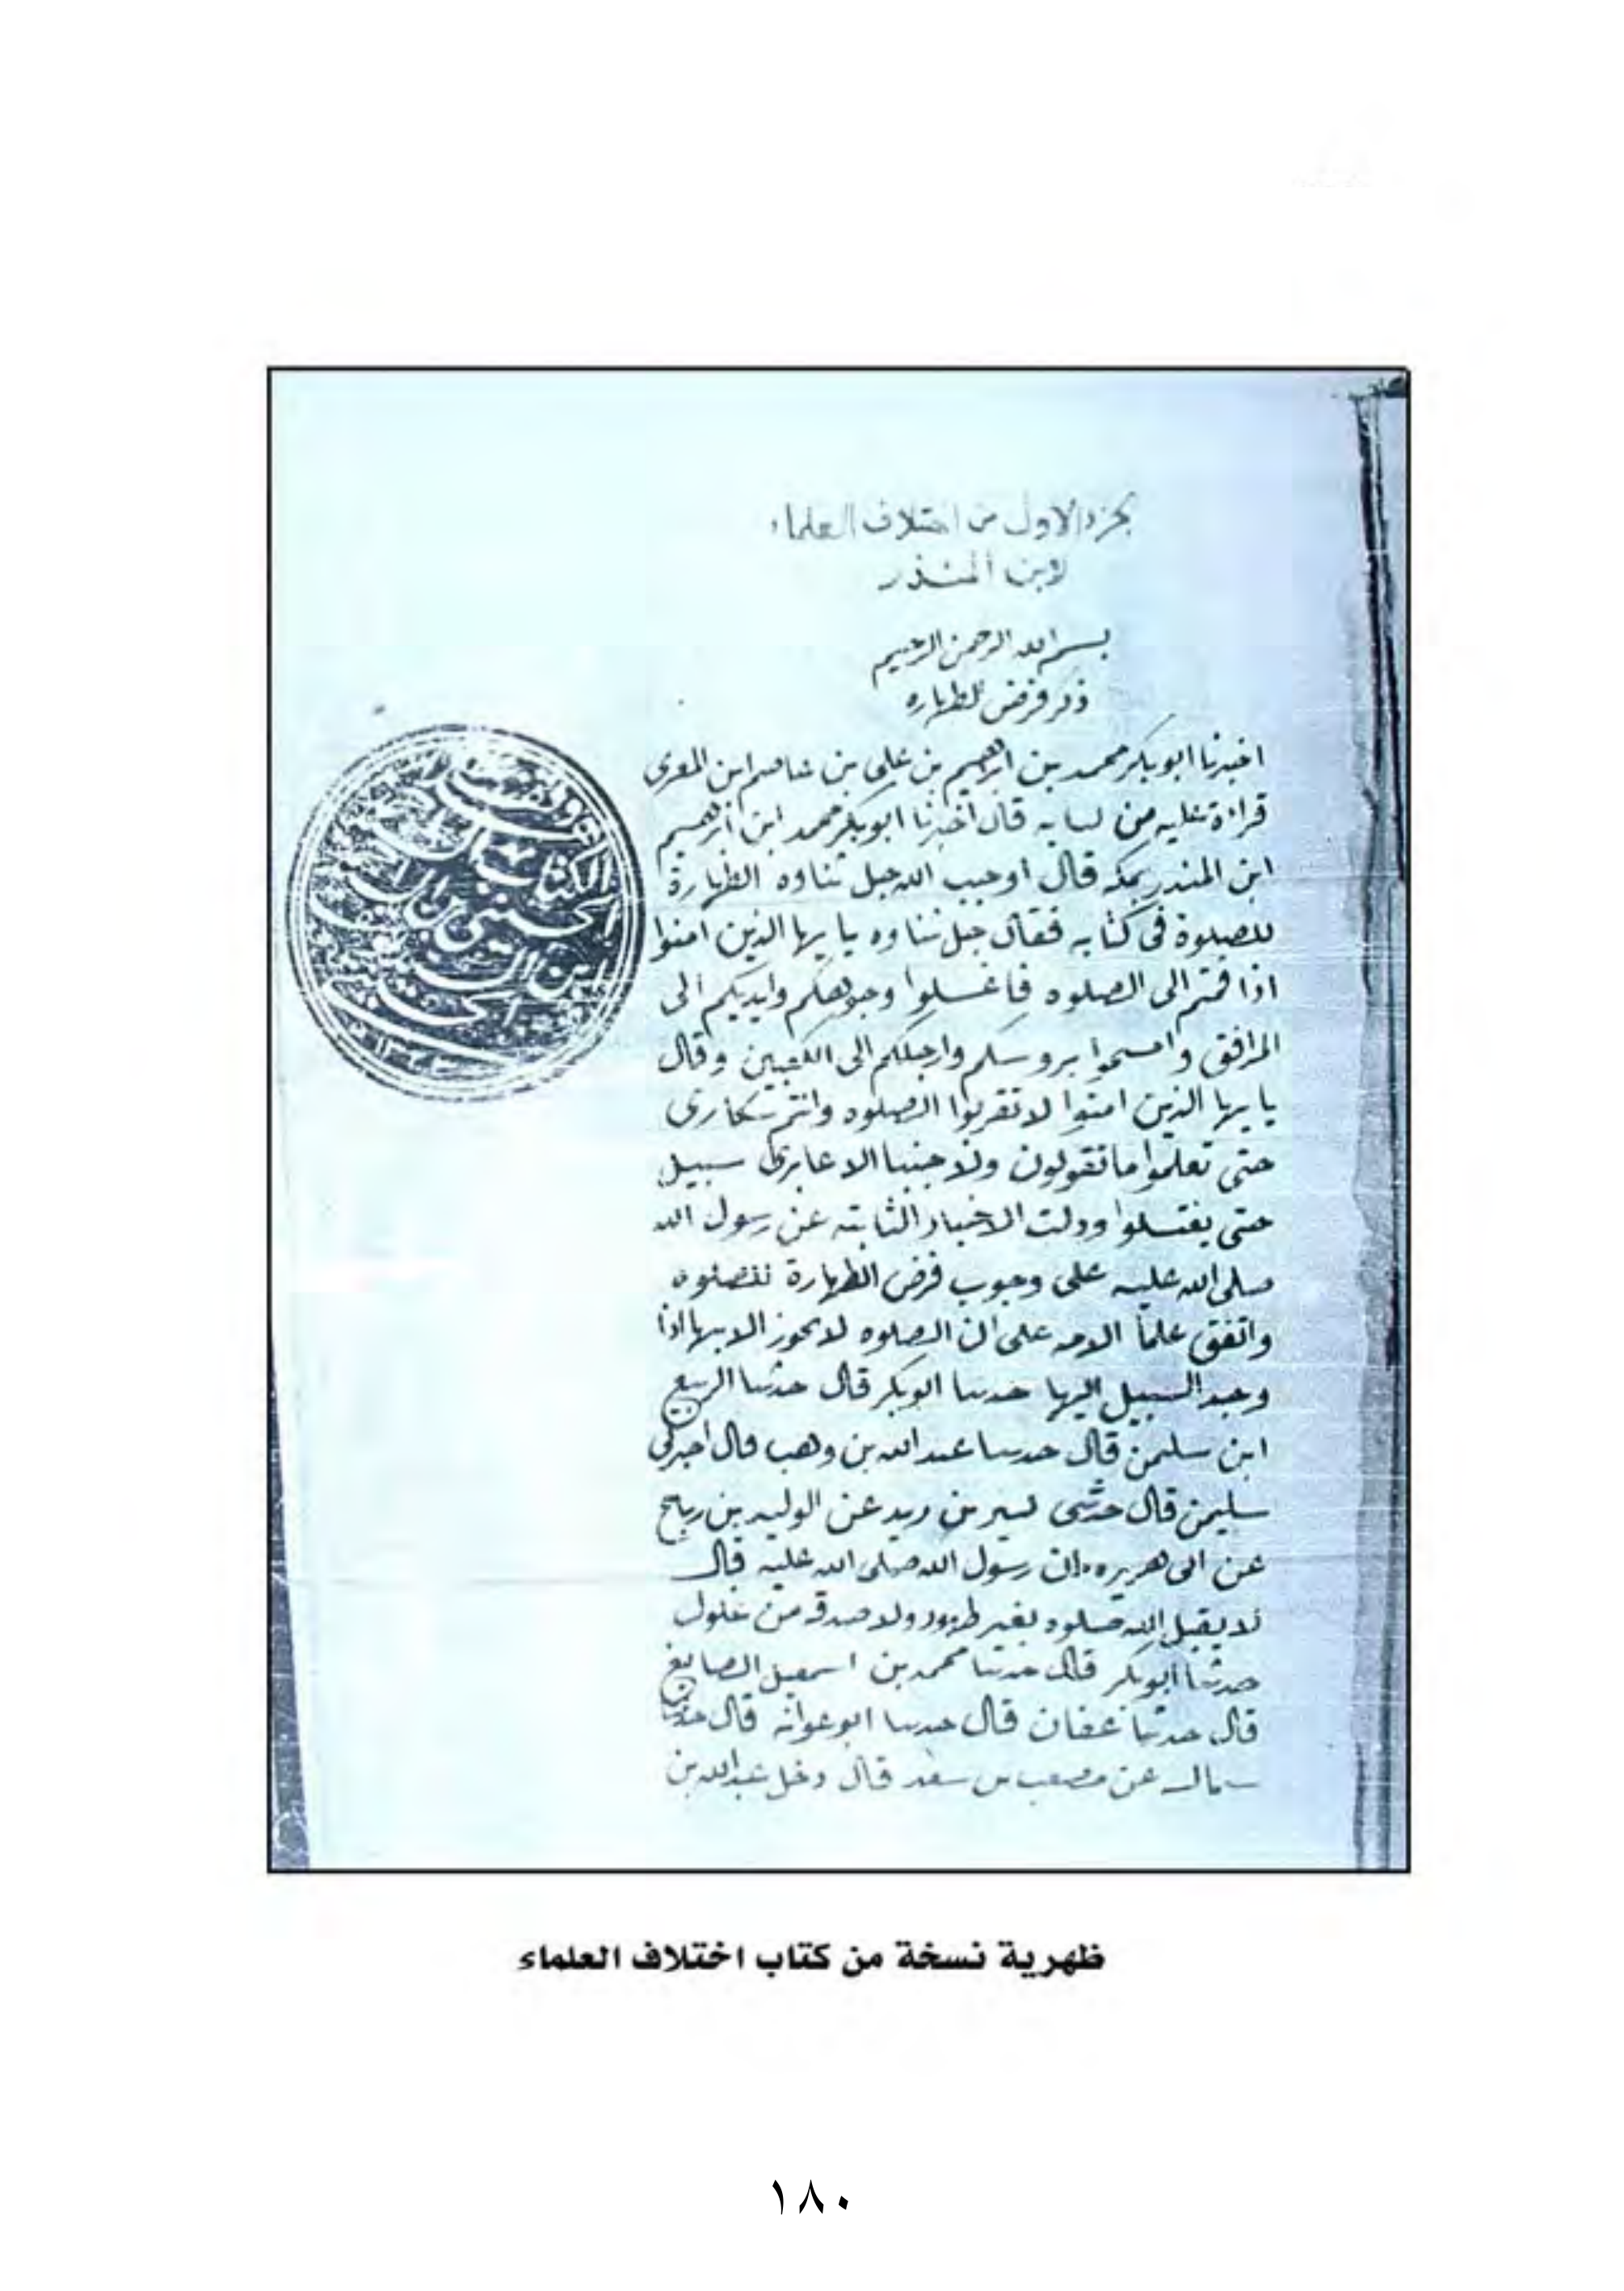 بجزء الاول من اختلاف العلماء
لابن المنذر
بسم الله الرحمن الرحيم
ذكر فرض الطهاره
اخبرنا ابوبكر محمد بن ابرهيم بن علي بن عاصم ابن المقرى
قراءة عليه من كتابه قال اخبرنا ابوبكر محمد ابن ابرهيم
ابن المنذر بمكه قال اوجب الله جل ثناوه الطهارة
للصلوة فى كتابه فقال جل ثناوه يا يها الذين امنوا
اذا قمتم الى الصلوه فاغسلوا وجوهكم وايديكم الى
المرافق وامسحوا بروسكم وارجلكم الى الكعبين وقال
يا يها الذين امنوا لا تقربوا الصلوه وانتم سكارى
حتى تعلموا ما تقولون ولا جنبا الا عابرى سبيل
حتى يغتسلوا ودلت الاخبار الثابته عن رسول الله
صلى الله عليه على وجوب فرض الطهارة للصلوه
واتفق علما الامه على ان الصلوه لا يجوز الا بها اذا
وجد السبيل اليها حدثنا ابوبكر قال حدثنا الربيع
ابن سليمن قال حدثنا عبد الله بن وهب قال اخبرنى
سليمن قال حدثنى كثير بن زيد عن الوليد بن رباح
عن ابى هريره ان رسول الله صلى الله عليه قال
لا يقبل الله صلوه بغير طهور ولا صدقه من غلول
حدثنا ابوبكر قال حدثنا محمد بن اسمعيل الصايغ
قال حدثنا عفان قال حدثنا ابوعوانه قال حدثنا
سماك عن مصعب بن سعد قال دخل عبد الله بن
ظهرية نسخة من كتاب اختلاف العلماء
١٨٠